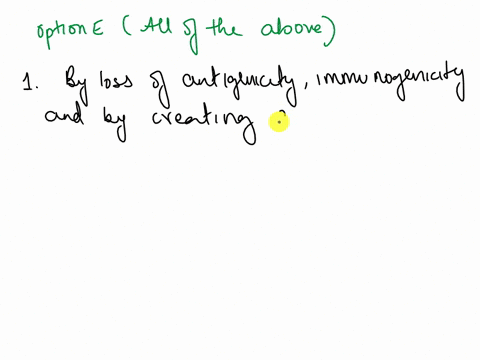 option E ( All of the above)
1. By loss of antigenicity, immunogenicity
and by creating